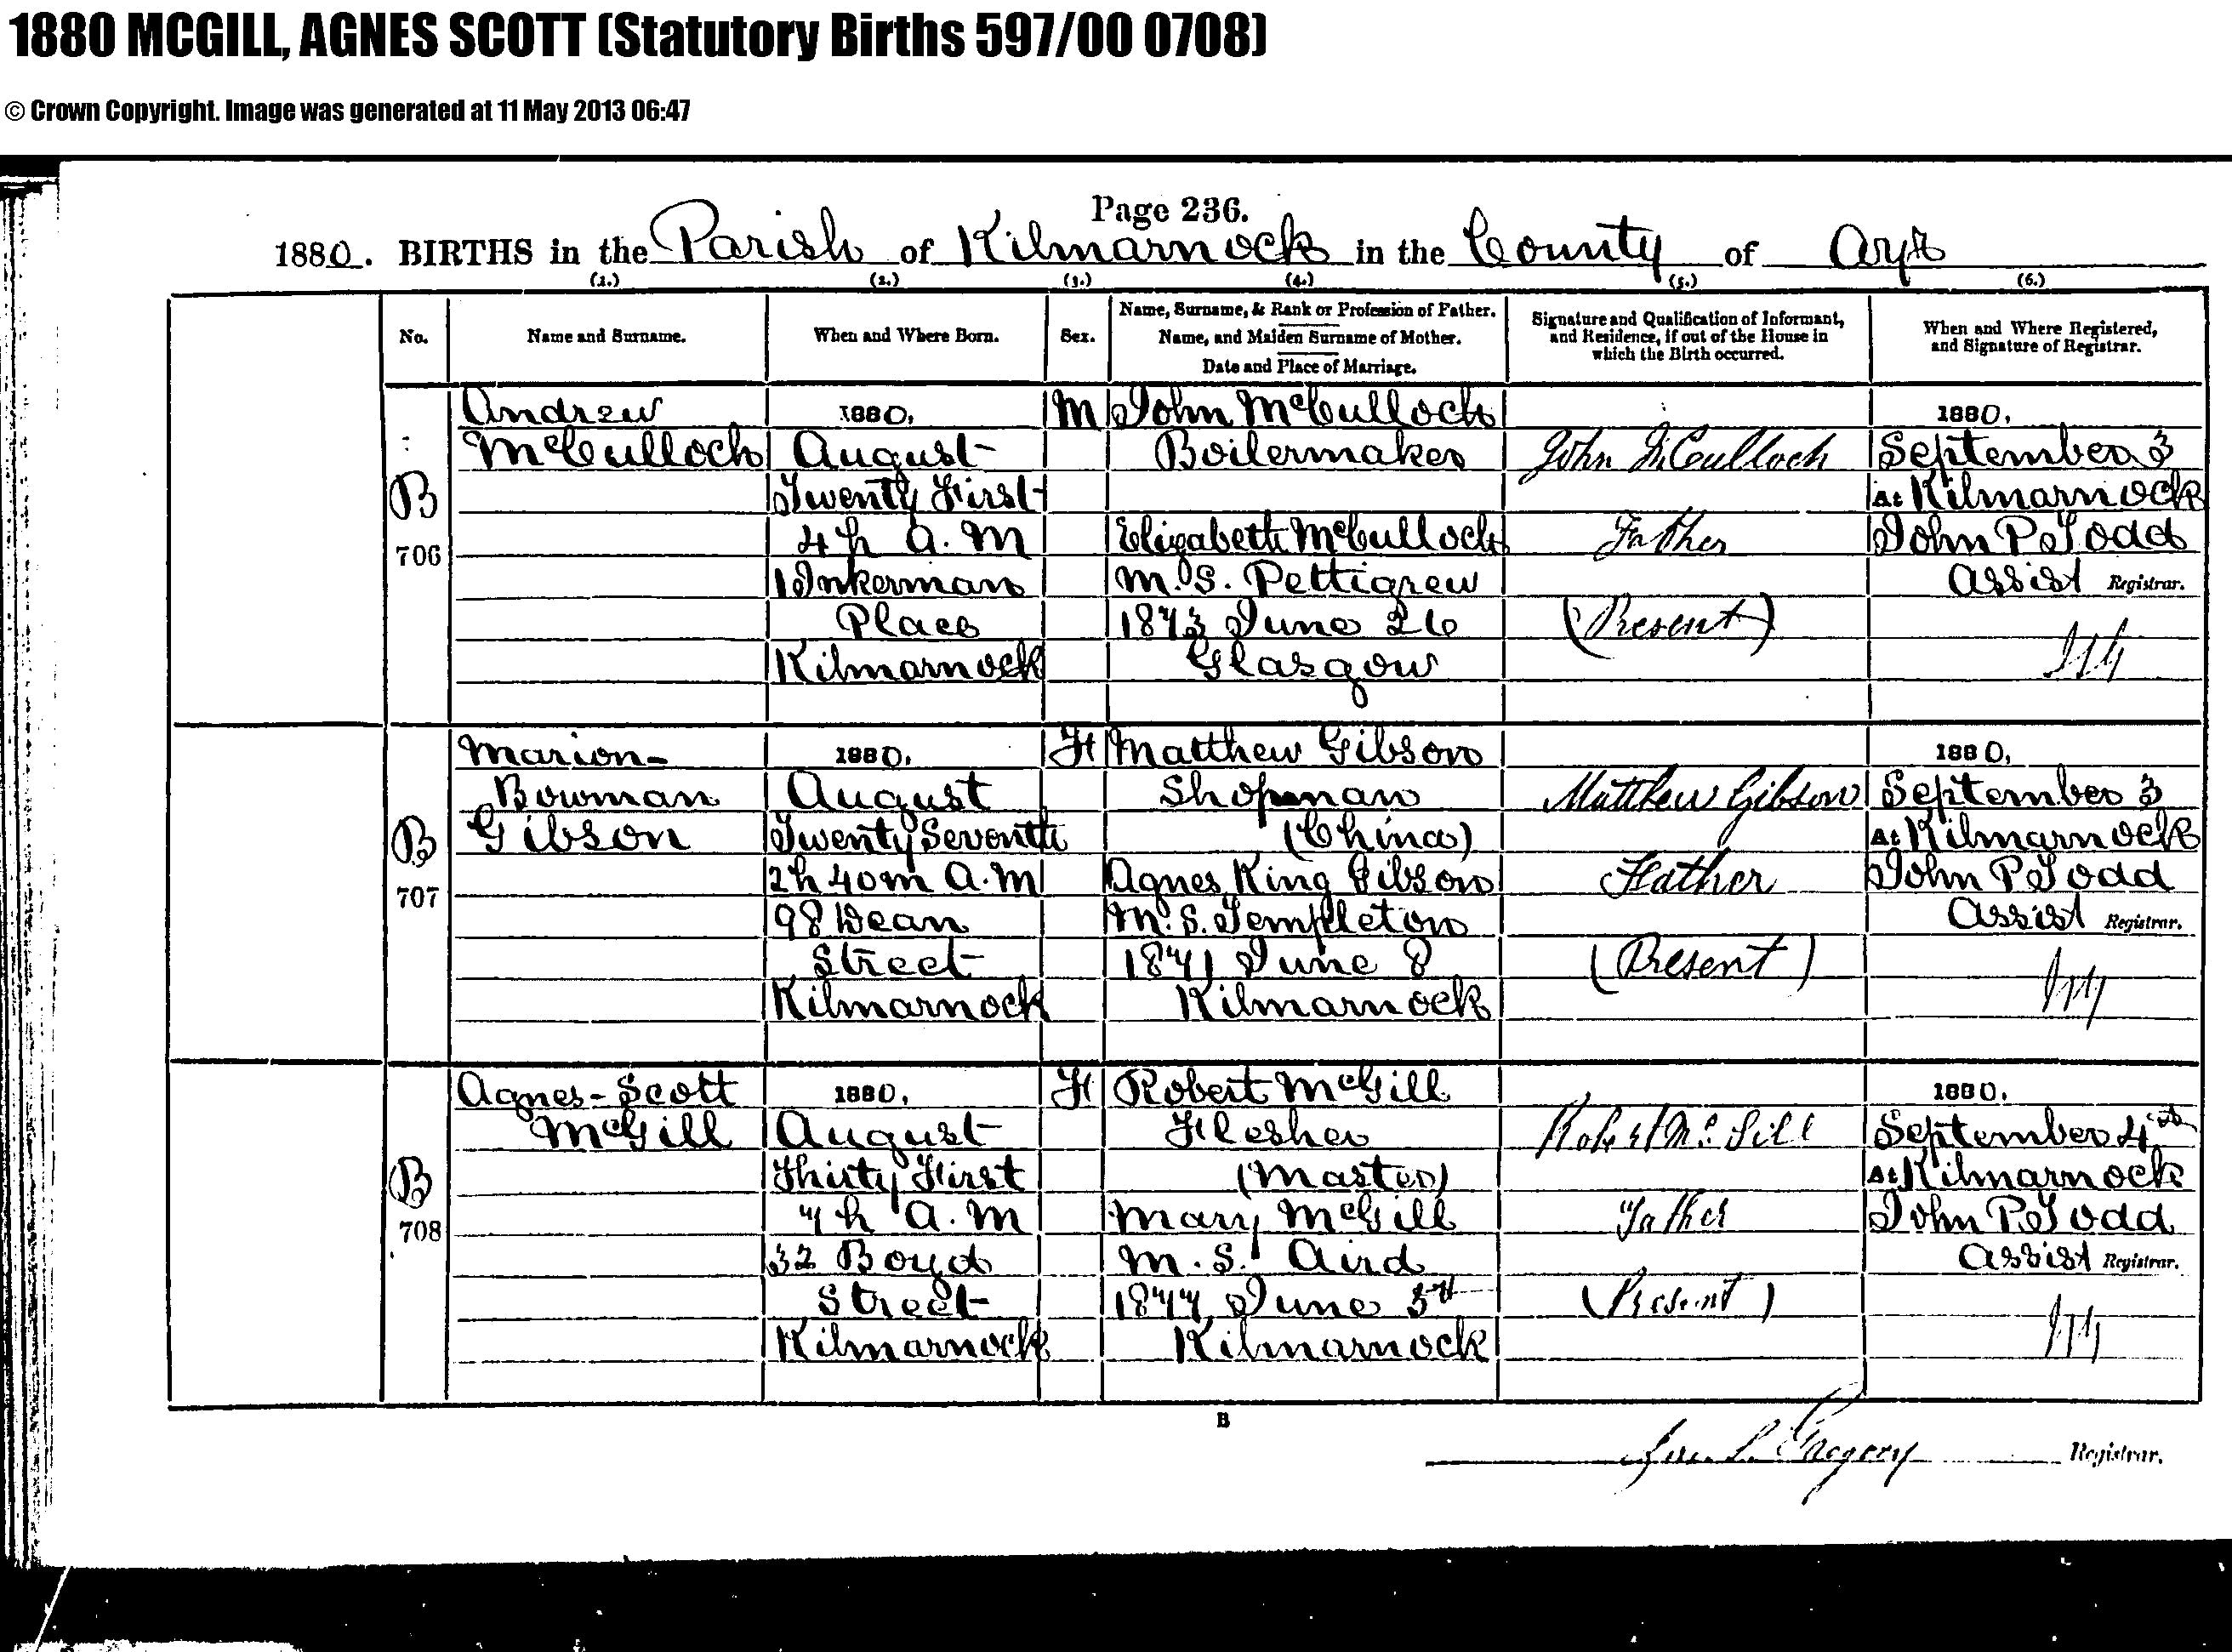 1880 MCGILL, AGNES SCOTT (Statutory Births 597/00 0708)
© Crown Copyright. Image was generated at 11 May 2013 06:47
Page 236.
1880. BIRTHS in the Parish of Kilmarnock in the County of Ayr
(1.) (2.) (3.) (4.) (5.) (6.)
No.
Name and Surname.
When and Where Born.
Sex.
Name, Surname, & Rank or Profession of Father.
Name, and Maiden Surname of Mother.
Date and Place of Marriage.
Signature and Qualification of Informant,
and Residence, if out of the House in
which the Birth occurred.
When and Where Registered,
and Signature of Registrar.
B
706
Andrew
McCulloch
1880,
August
Twenty First
4h A.M
1 Inkerman
Place
Kilmarnock
M
John McCulloch
Boilermaker
Elizabeth McCulloch
M.S. Pettigrew
1873 June 26
Glasgow
John McCulloch
Father
(Present)
1880,
September 3
At Kilmarnock
John P Todd
Assist Registrar.
B
707
Marion-
Bowman
Gibson
1880,
August
Twenty Seventh
2h 40m A.M
98 Dean
Street
Kilmarnock
F
Matthew Gibson
Shopman
(China)
Agnes King Gibson
M.S. Templeton
1871 June 8
Kilmarnock
Matthew Gibson
Father
(Present)
1880,
September 3
At Kilmarnock
John P Todd
Assist Registrar.
B
708
Agnes-Scott
McGill
1880,
August
Thirty First
7h A.M
32 Boyd
Street
Kilmarnock
F
Robert McGill
Flesher
(Master)
Mary McGill
M.S. Aird
1877 June 5th
Kilmarnock
Robert McGill
Father
(Present)
1880,
September 4th
At Kilmarnock
John P Todd
Assist Registrar.
B
Gregory Registrar.